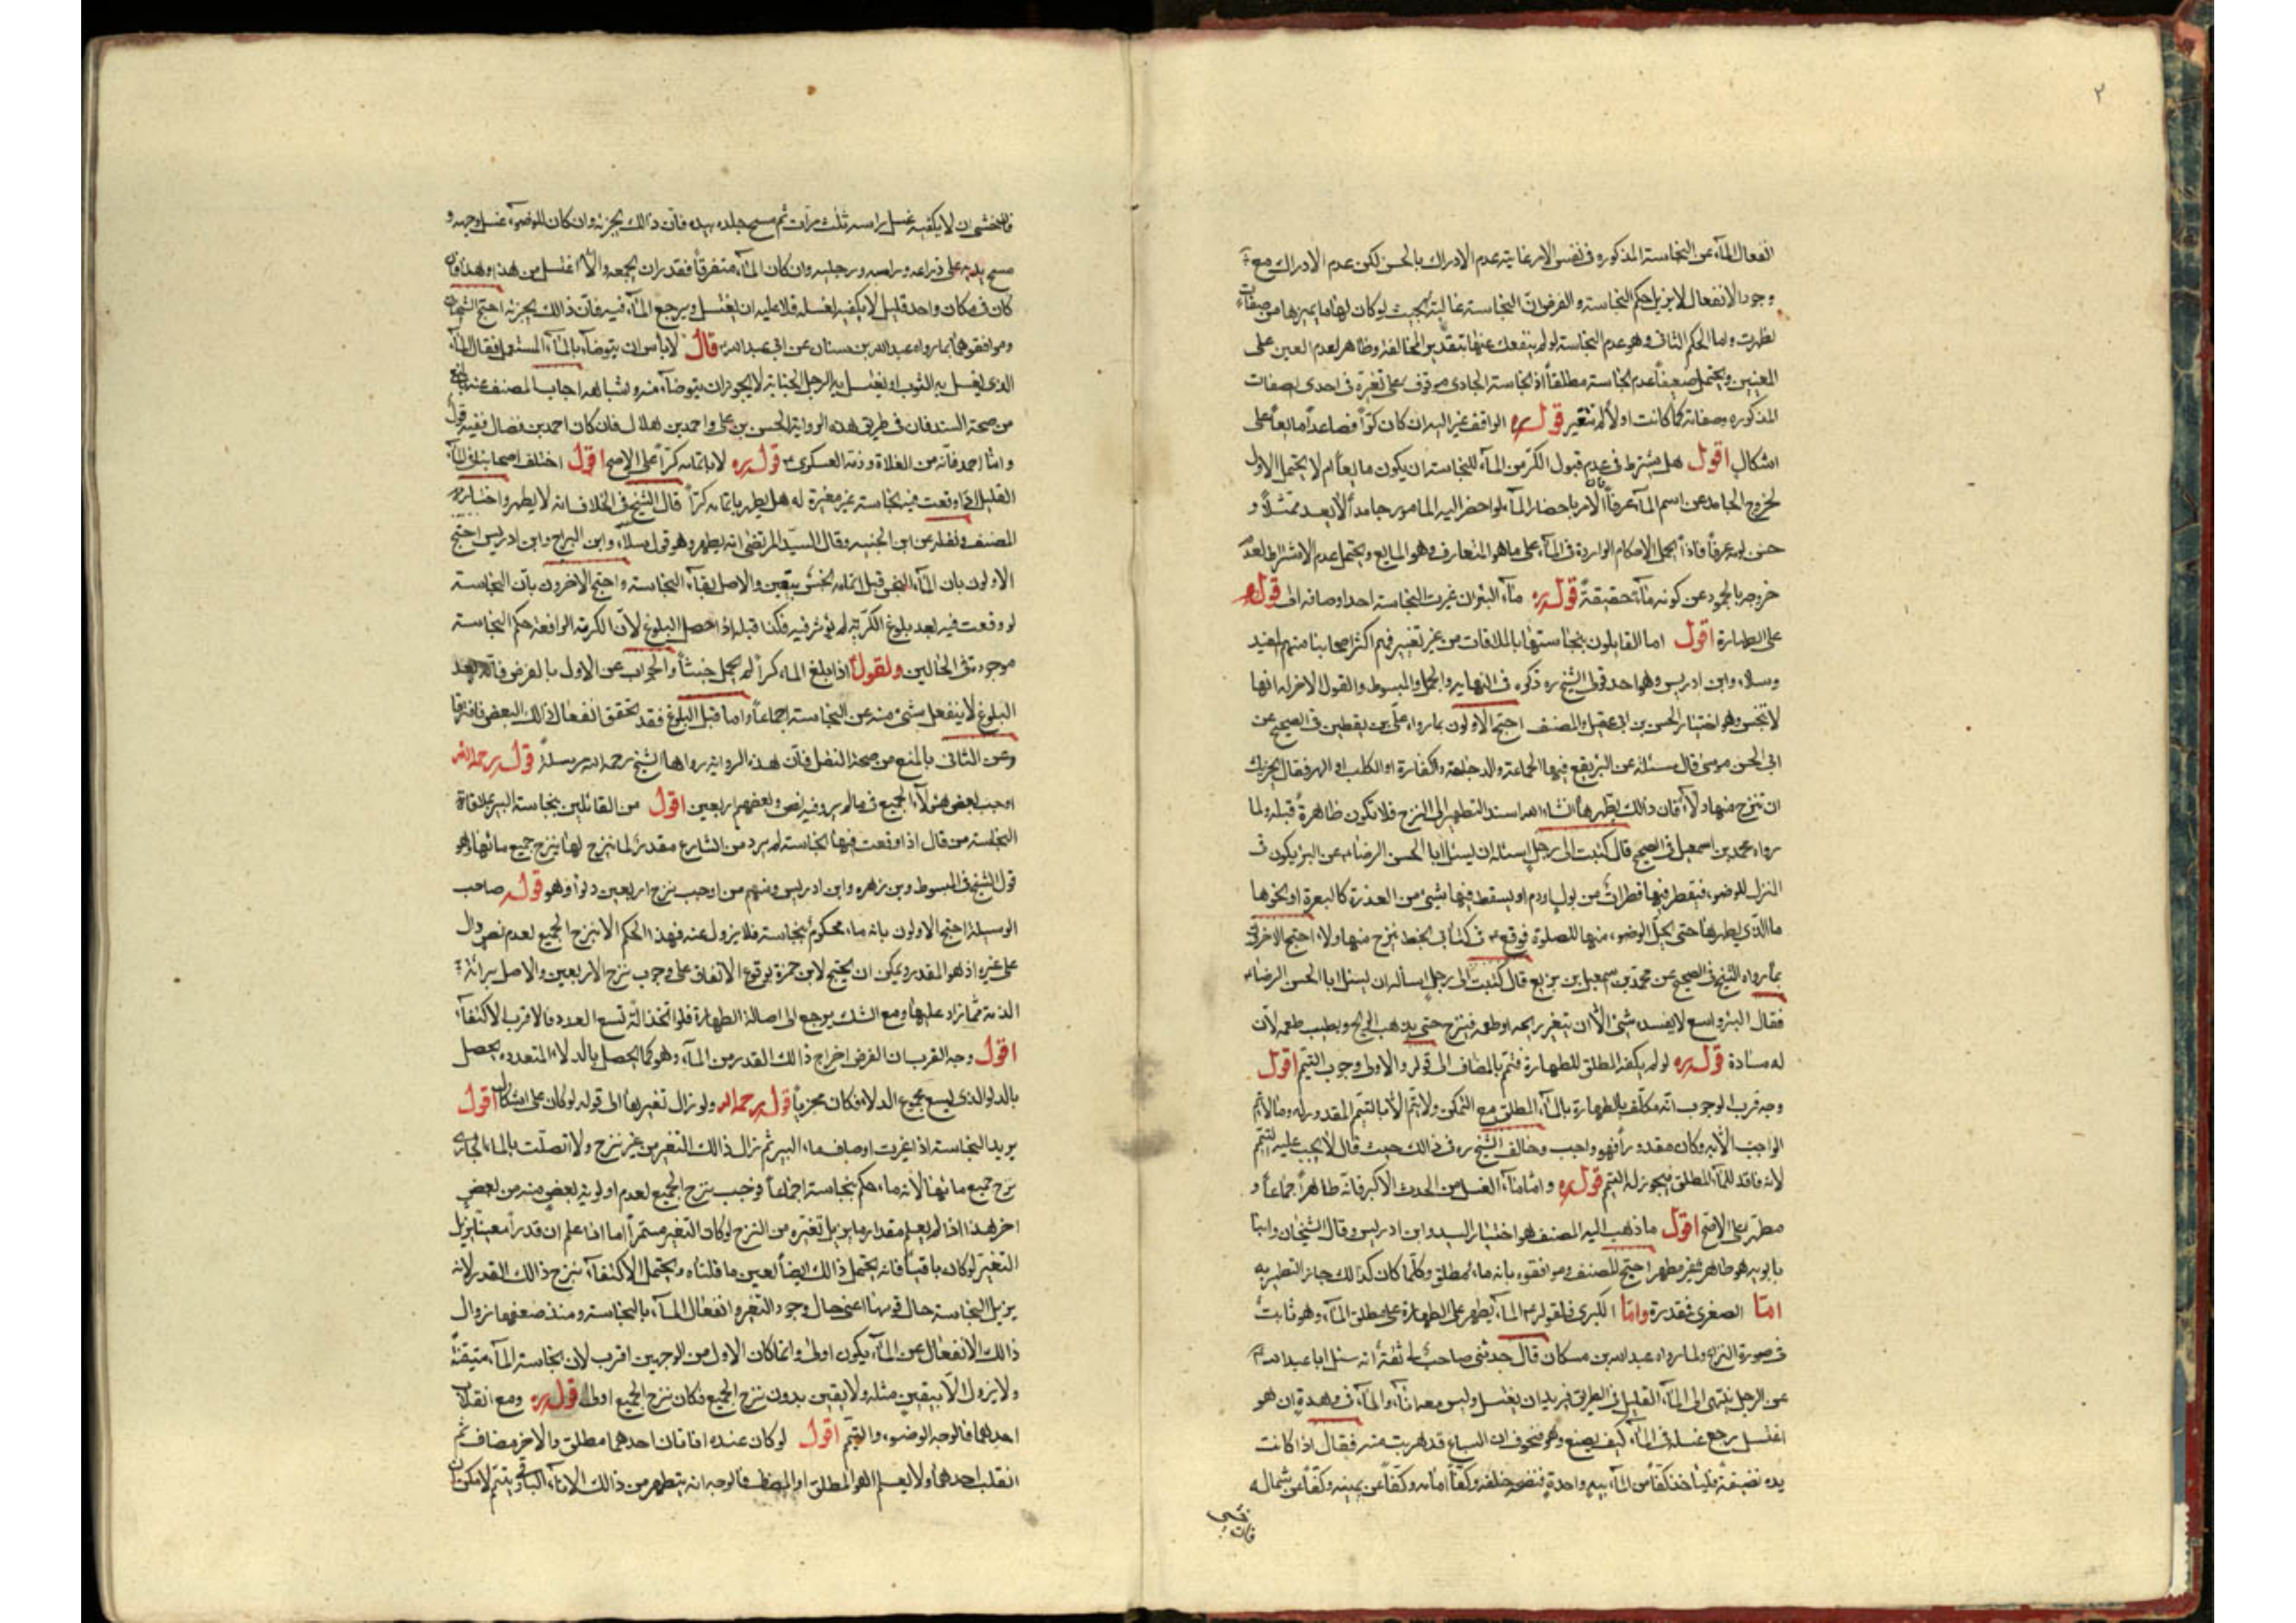 ٢
انفعال المآء عن النجاسة المذكورة فى نفس الامر غايته عدم الادراك بالحس لكن عدم الادراك مع
وجود الانفعال لا يزيل حكم النجاسة والفرض انّ النجاسة غالبة بحيث لو كان لها ما يميزها من صفات
لظهرت واما الحكم الثانى وهو عدم النجاسة لو لم ينفعل عنها بتقدير المخالفة وظاهر لعدم العين على
المعنيين ويحتمل ضعيفاً عدم النجاسة مطلقاً اذ نجاسة الجارى موقوف على تغيّره فى احدى الصفات
المذكورة وصفاته كما كانت اولاً لم تتغير قوله ره الواقف غير البئر ان كان كرّاً فصاعداً مايعاً على
اشكال اقول هل يشترط فى عدم قبول الكرّ من المآء للنجاسة ان يكون مايعاً ام لا يحتمل الاول
لخروج الجامد عن اسم المآء عرفاً فانّ الامر باحضار المآء لو احضر اليه المامور جامداً لا يعد ممتثلاً و
حسن لومه عرفاً فاذاً يحمل الاحكام الواردة فى المآء على ما هو المتعارف وهو المايع ويحتمل عدم الاشتراط لعدم
خروجه بالجمود عن كونه مآء حقيقةً قوله ره مآء البئر ان غيرت النجاسة احد اوصافه الى قوله
على الطهارة اقول اما القايلون بنجاستها بالملاقات من غير تغيير فهم اكثر اصحابنا منهم المفيد
وسلار وابن ادريس وهو احد قولى الشيخ ره ذكره فى النهاية والجمل والمبسوط والقول الاخر له انها
لا تنجس وهو اختيار الحسن بن ابى عقيل والمصنف احتج الاولون بما رواه على بن يقطين فى الصحيح عن
ابى الحسن موسى قال سئلته عن البئر يقع فيها الحمامة والدجاجة والفارة او الكلب او الهر فقال يجزيك
ان تنزح منها دلآء فان ذالك يطهرها انشاء الله اسند التطهير الى النزح فلا تكون طاهرةً قبله ولما
رواه محمد بن اسمعيل فى الصحيح قال كتبت الى رجل اسئله ان يسئل ابا الحسن الرضا ع عن البئر يكون فى
المنزل للوضوء فيقطر فيها قطرات من بول او دم او يسقط فيها شئ من العذرة كالبعرة او نحوها
ما الذى يطهرها حتى يحل الوضوء منها للصلوة فوقع ع فى كتابى بخطه ينزح منها دلاء احتج الاخرون
بما رواه الشيخ فى الصحيح عن محمّد بن اسمعيل بن بزيع قال كتبت الى رجل اسأله ان يسئل ابا الحسن الرضا ع
فقال البئر واسع لا يفسده شئ الّا ان يتغير ريحه او طعمه فينزح حتى يذهب الريح ويطيب طعمه لأن
له مادة قوله ره لو لم يكفه المطلق للطهارة فتمم بالمضاف الى قوله والاولى وجوب التيمم اقول
وجه قرب الوجوب انّه مكلّف بالطهارة بالمآء المطلق مع التمكن ولا يتم الّا بالتتميم المقدور له وما لا يتم
الواجب الّا به وكان مقدوراً فهو واجب وخالف الشيخ ره فى ذالك حيث قال لا يجب عليه التتميم
لانه فاقد للمآء المطلق فيجوز له التيمم قوله ره وامّا مآء الغسل من الحدث الاكبر فانّه طاهر اجماعاً و
مطهّر على الاصح اقول ما ذهب اليه المصنف هو اختيار السيد وابن ادريس وقال الشيخان وابنا
بابويه هو طاهر غير مطهر احتج المصنف وموافقوه بانه ماء مطلق وكلّما كان كذالك جاز التطهير به
امّا الصغرى فمقدرة وامّا الكبرى فلقوله ع المآء يطهر على الطهارة على مطلق المآء وهو ثابت
فى صورة النزاع ولما رواه عبد الله بن مسكان قال حدثنى صاحب لى ثقة انه سئل ابا عبد الله ع
عن الرجل ينتهى الى المآء القليل فى الطريق فيريد ان يغتسل وليس معه انآء والمآء فى وهدة ان هو
اغتسل رجع غسله فى المآء كيف يصنع وهو متخوف ان السباع قد هربت منه فقال اذا كانت
يده نضيفةً فليأخذ كفّاً من المآء بيدٍ واحدةٍ فنضحه خلفه وكفّاً امامه وكفّاً عن يمينه وكفّاً عن شماله
فان خشى
فان خشى ان لا يكفيه غسل راسه ثلث مرّات ثم مسح جلده بيده فانّ ذالك يجزيه وان كان للوضوء غسل وجهه و
مسح يده على ذراعه وراسه ورجليه وان كان المآء متفرقاً فقدر ان يجمعه والّا اغتسل من هذا وهذا فان
كان فى مكان واحد قليل لا يكفيه لغسله فلا عليه ان يغتسل ويرجع المآء فيه فانّ ذالك يجزيه احتج الشيخان
وموافقوهما بما رواه عبد الله بن سنان عن ابى عبد الله ع قال لا باس ان يتوضآء بالمآء المستعمل فقال المآء
الذى يغسل به الثوب او يغتسل به الرجل الجنابة لا يجوز ان يتوضآء منه واشباهه اجاب المصنف عنه بالمنع
من صحة السند فان فى طريق هذه الرواية الحسن بن على واحمد بن هلال فان كان احمد بن فضال ففيه قول
وامّا احمد فانّه من الغلاة وذمّه العسكرى ع قوله ره لا باتمامه كرّاً على الاصح اقول اختلف اصحابنا فى المآء
القليل اذا وقعت فيه نجاسة غير مغيرة له هل يطهر باتمامه كرّاً قال الشيخ فى الخلاف انه لا يطهر واختاره
المصنف ونقله عن ابن الجنيد وقال السيّد المرتضى انه يطهر وهو قول سلار وابن البراج وابن ادريس احتج
الاولون بان المآء النجس قبل اتمامه نجس بيقين والاصل بقآء النجاسة واحتج الاخرون بأنّ النجاسة
لو وقعت فيه بعد بلوغ الكرّية لم يؤثر فيه فكذا قبله اذا حصل البلوغ لأنّ الكرية الرافعة حكم النجاسة
موجودة فى الحالين ولقوله اذا بلغ الماء كراً لم يحمل خبثاً والجواب عن الاول بالفرق فانّه بعد
البلوغ لا ينفعل شئ منه عن النجاسة اجماعاً واما قبل البلوغ فقد تحقق انفعال ذالك البعض فافترقا
وعن الثانى بالمنع من صحة النقل فانّ هذه الرواية رواها الشيخ رحمه الله مرسلةً قوله رحمه الله
اوجب بعض هؤلآء الجميع فيما لم يرو فيه نص وبعضهم اربعين اقول من القائلين بنجاسة البئر بملاقاة
النجاسة من قال اذا وقعت فيها نجاسة لم يرد من الشارع مقدر لما ينزح لها ينزح جميع مائها وهو
قول الشيخ فى المبسوط وبن زهره وابن ادريس ومنهم من اوجب نزح اربعين دلواً وهو قول صاحب
الوسيلة احتج الاولون بانه ماء محكوم بنجاسته فلا يزول عنه فهذا الحكم الا بنزح الجميع لعدم نص دال
على غيره اذ هو المقدر ويمكن ان يحتج لابن حمزة بوقوع الاتفاق على وجوب نزح الاربعين والاصل برائة
الذمة فمّا زاد عليها ومع الشك يرجع الى اصالة الطهارة فلو اتخذ الة تسع العدد فالاقرب الاكتفآء
اقول وجه القرب ان الغرض اخراج ذالك القدر من المآء وهو كما يحصل بالدلاء المتعددة يحصل
بالدلو الذى يسع مجموع الدلاء فكان مجزياً قوله رحمه الله ولو زال تغيرها الى قوله لو كان على اشكال اقول
يريد النجاسة اذا غيرت اوصاف ماء البير ثم زال ذالك التغير من غير نزح ولا اتصلت بالماء الجارى
نزح جميع مائها لانه ماء حكم بنجاسته اجماعاً فوجب نزح الجميع لعدم اولوية بعضٍ منه من بعضٍ
اخر هذا اذا لم يعلم مقدار ما يزيل تغيّره من النزح لو كان التغير مستمراً اما اذا علم ان قدراً معيناً يزيل
التغير لو كان باقياً فانه يحتمل ذالك ايضاً لعين ما قلناه ويحتمل الاكتفآء بنزح ذالك القدر لانه
يزيل النجاسة حال قوتها اعنى حال وجود التغير وانفعال المآء بالنجاسة ومنذ ضعفها نزوال
ذالك الانفعال عن المآء يكون اولى وانما كان الاول من الوجهين اقرب لان نجاسة المآء متيقنة
ولا يزول الّا بيقين مثله ولا يقين بدون نزح الجميع فكان نزح الجميع اولى قوله ره ومع انقلاب
احدهما فالوجه الوضوء والتيمّم اقول لو كان عنده اناءان احدهما مطلق والاخر مضاف ثم
انقلب احدهما ولا يعلم اهو المطلق او المضاف فالوجه انه يتطهر من ذالك الانآء الباقى ويتيمّم لامكان